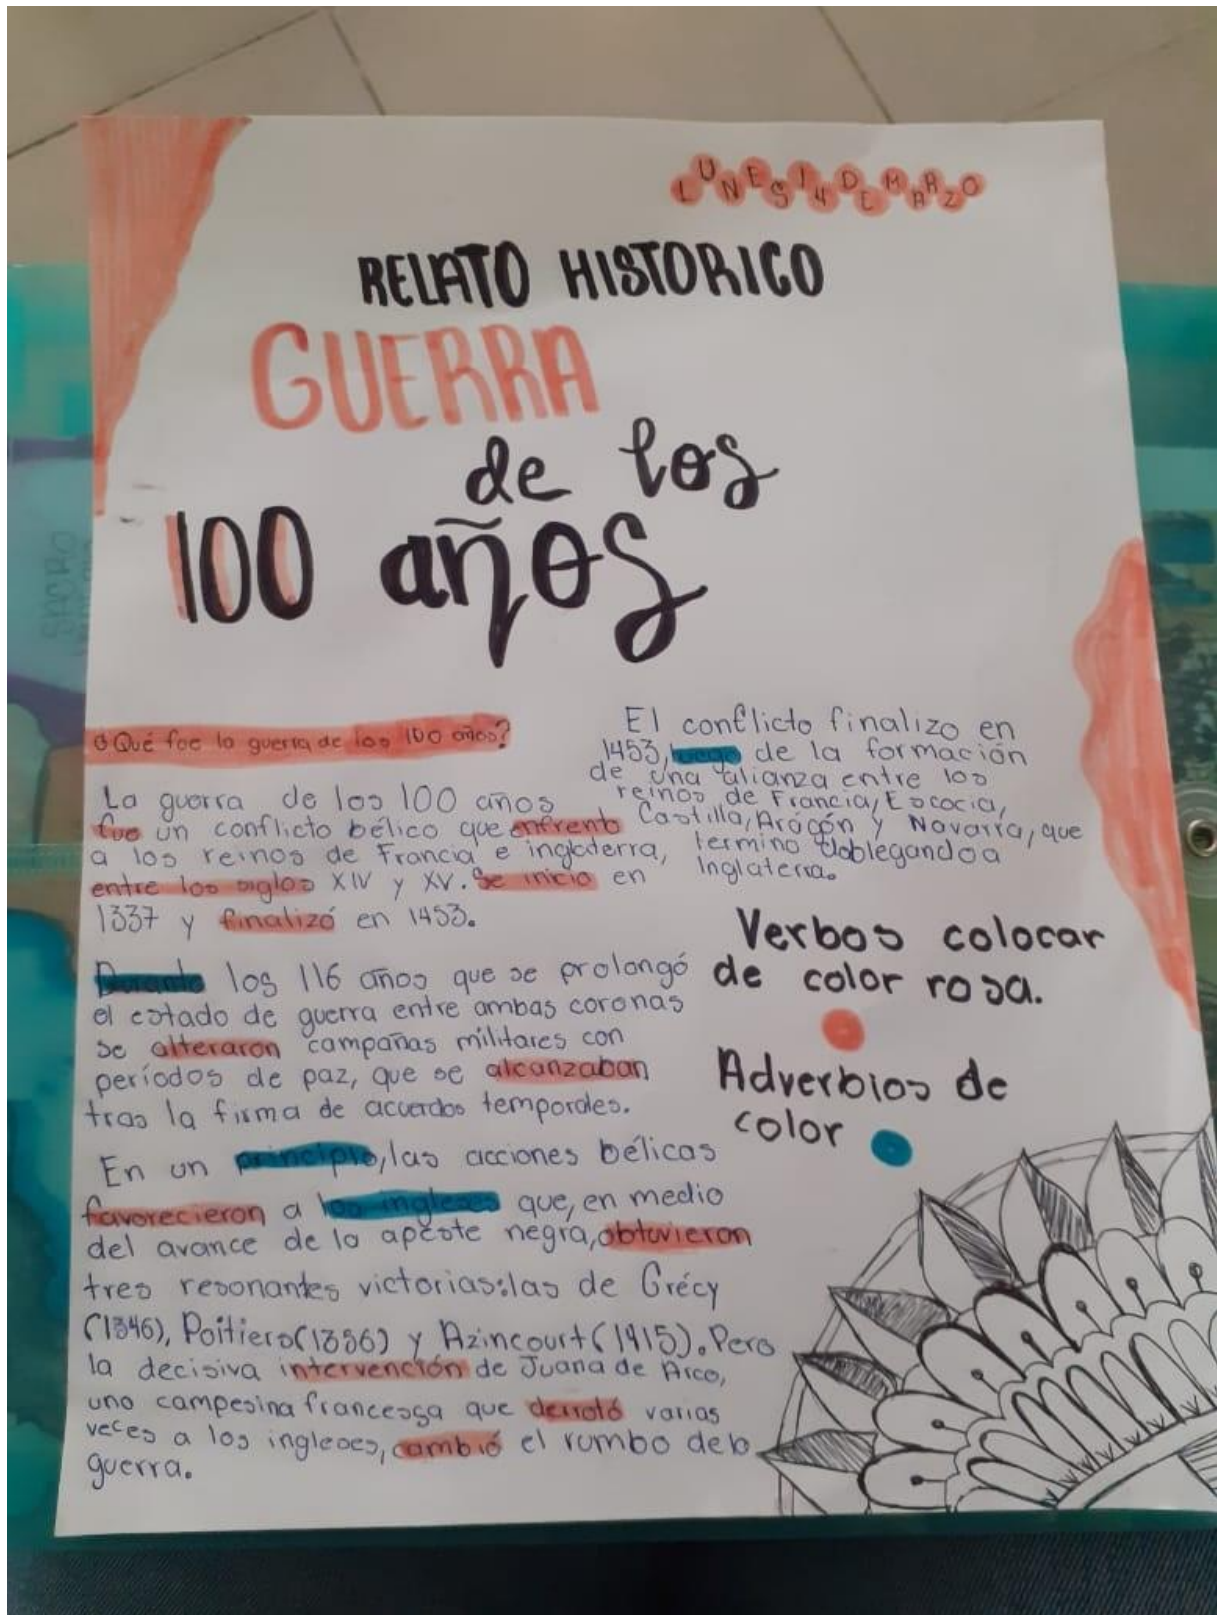 LUNES 14 DE MARZO
RELATO HISTORICO
GUERRA
de los
100 años
¿Qué fue la guerra de los 100 años?
La guerra de los 100 años
fue un conflicto bélico que enfrento
a los reinos de Francia e inglaterra,
entre los siglos XIV y XV. Se inicio en
1337 y finalizó en 1453.
Durante los 116 años que se prolongó
el estado de guerra entre ambas coronas
se alteraron campañas militares con
períodos de paz, que se alcanzaban
tras la firma de acuerdos temporales.
En un principio, las acciones bélicas
favorecieron a los ingleses que, en medio
del avance de la apeste negra, obtuvieron
tres resonantes victorias: las de Grécy
(1346), Poitiers (1356) y Azincourt (1415). Pero
la decisiva intervención de Juana de Arco,
una campesina francesga que derrotó varias
veces a los ingleses, cambió el rumbo dela
guerra.
El conflicto finalizo en
1453, luego de la formación
de una alianza entre los
reinos de Francia, Escocia,
Castilla, Arógón y Navarra, que
termino doblegando a
Inglaterra.
Verbos colocar
de color rosa.
Adverbios de
color